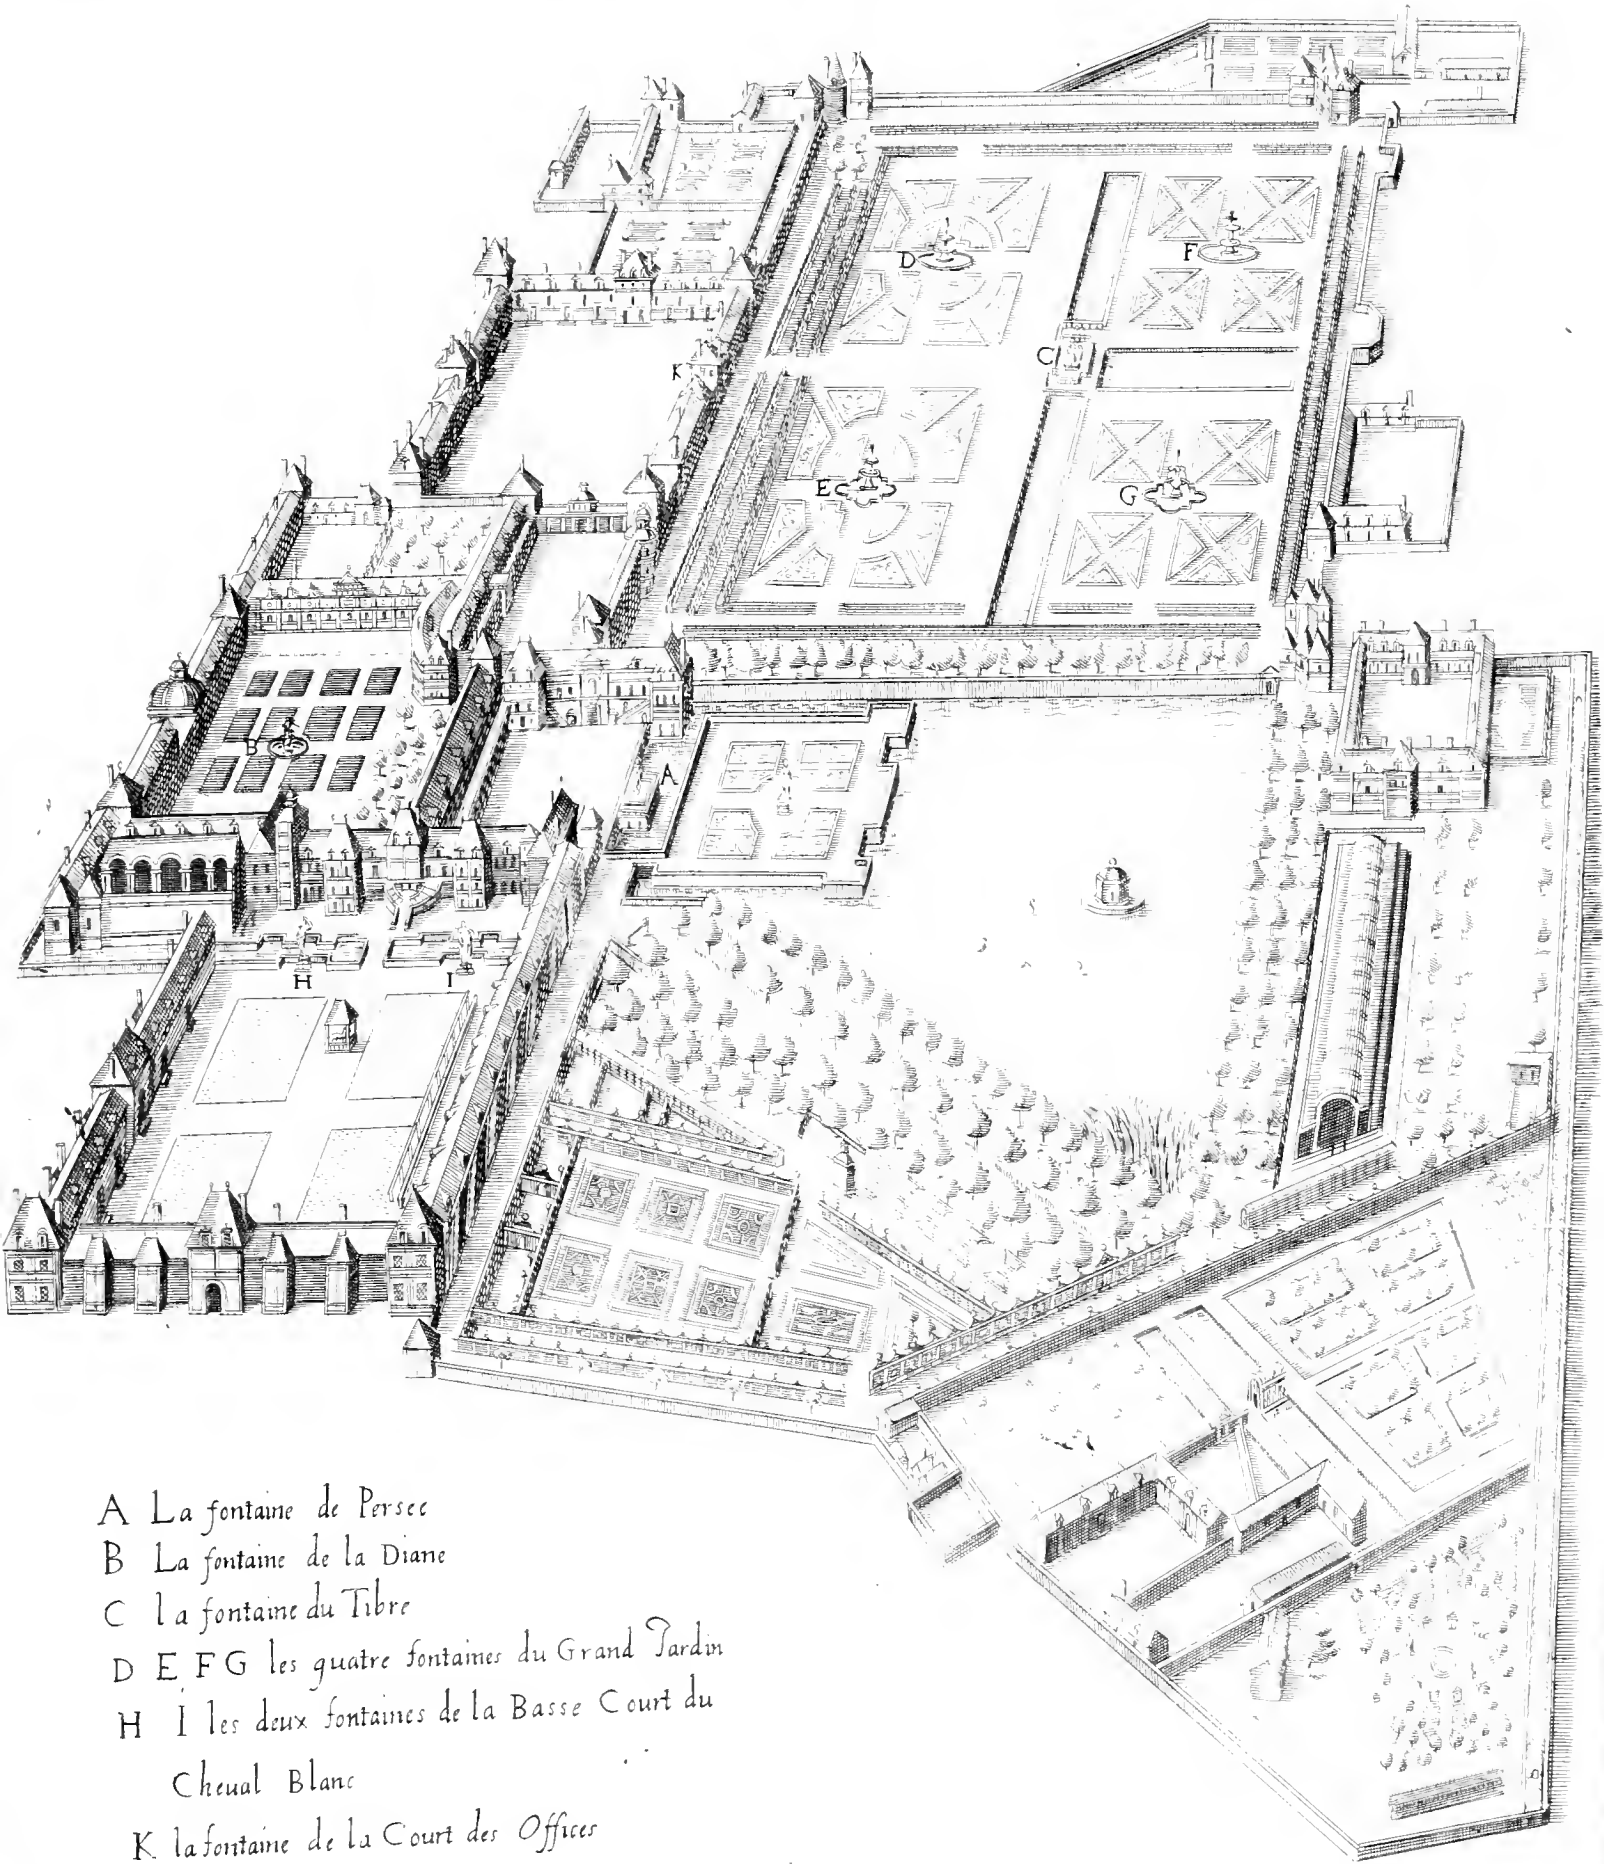 D
F
K
C
E
G
B
A
H
I
A La fontaine de Persee
B La fontaine de la Diane
C la fontaine du Tibre
D E F G les quatre fontaines du Grand Jardin
H I les deux fontaines de la Basse Court du
Cheual Blanc
K la fontaine de la Court des Offices